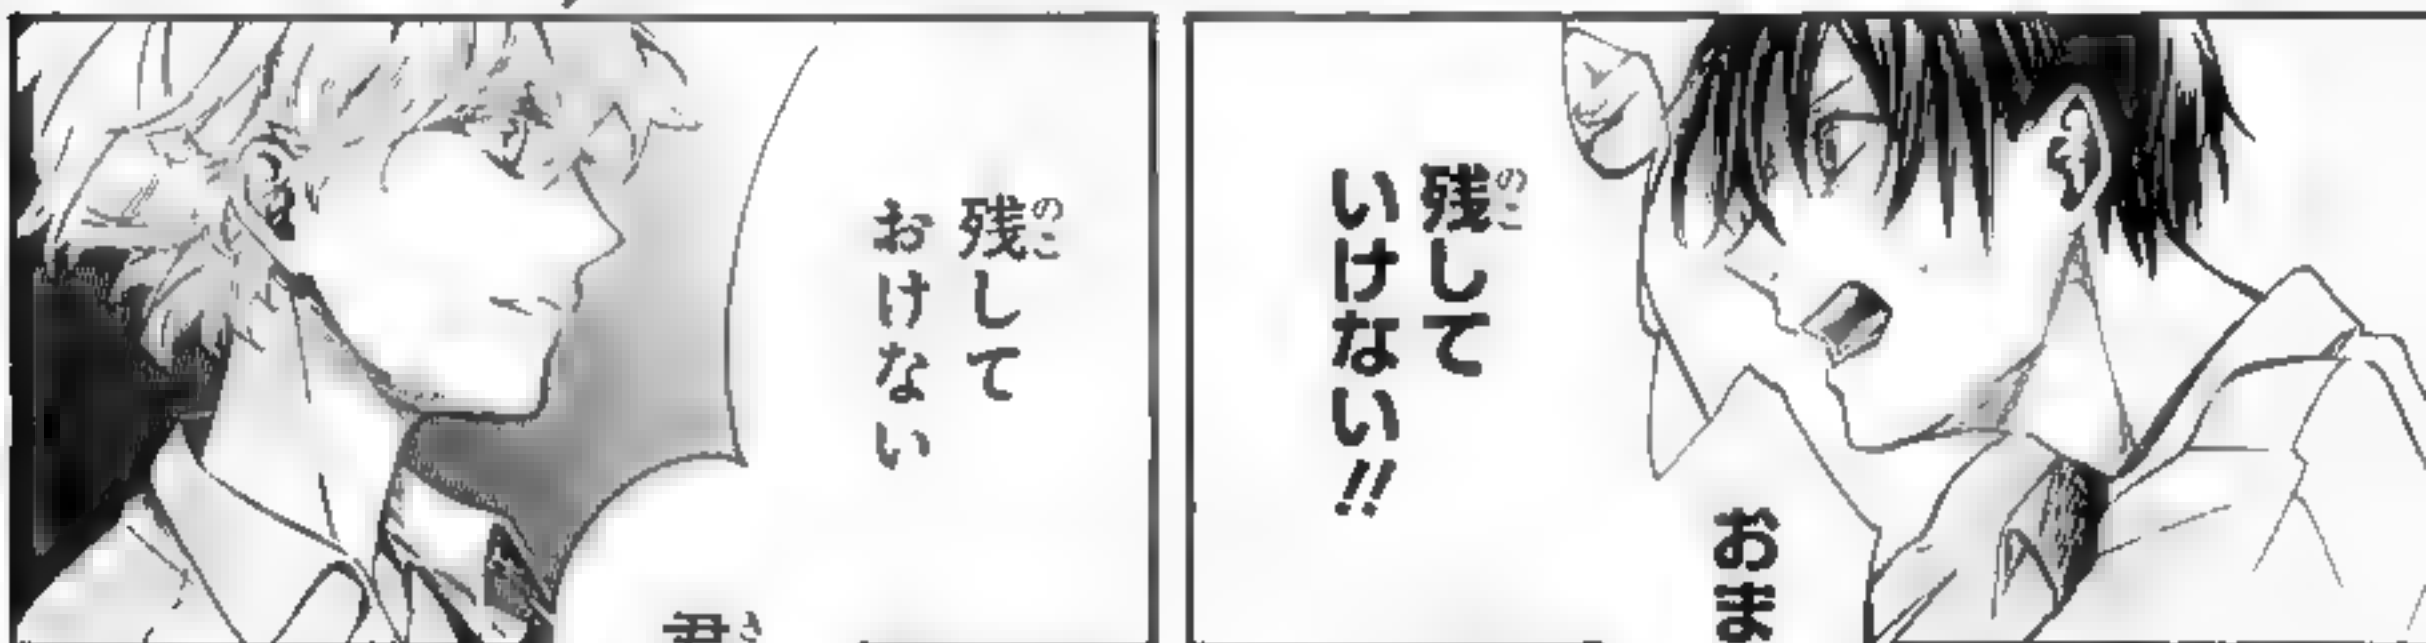 残して
いけない!!
おま
残して
おけない
君